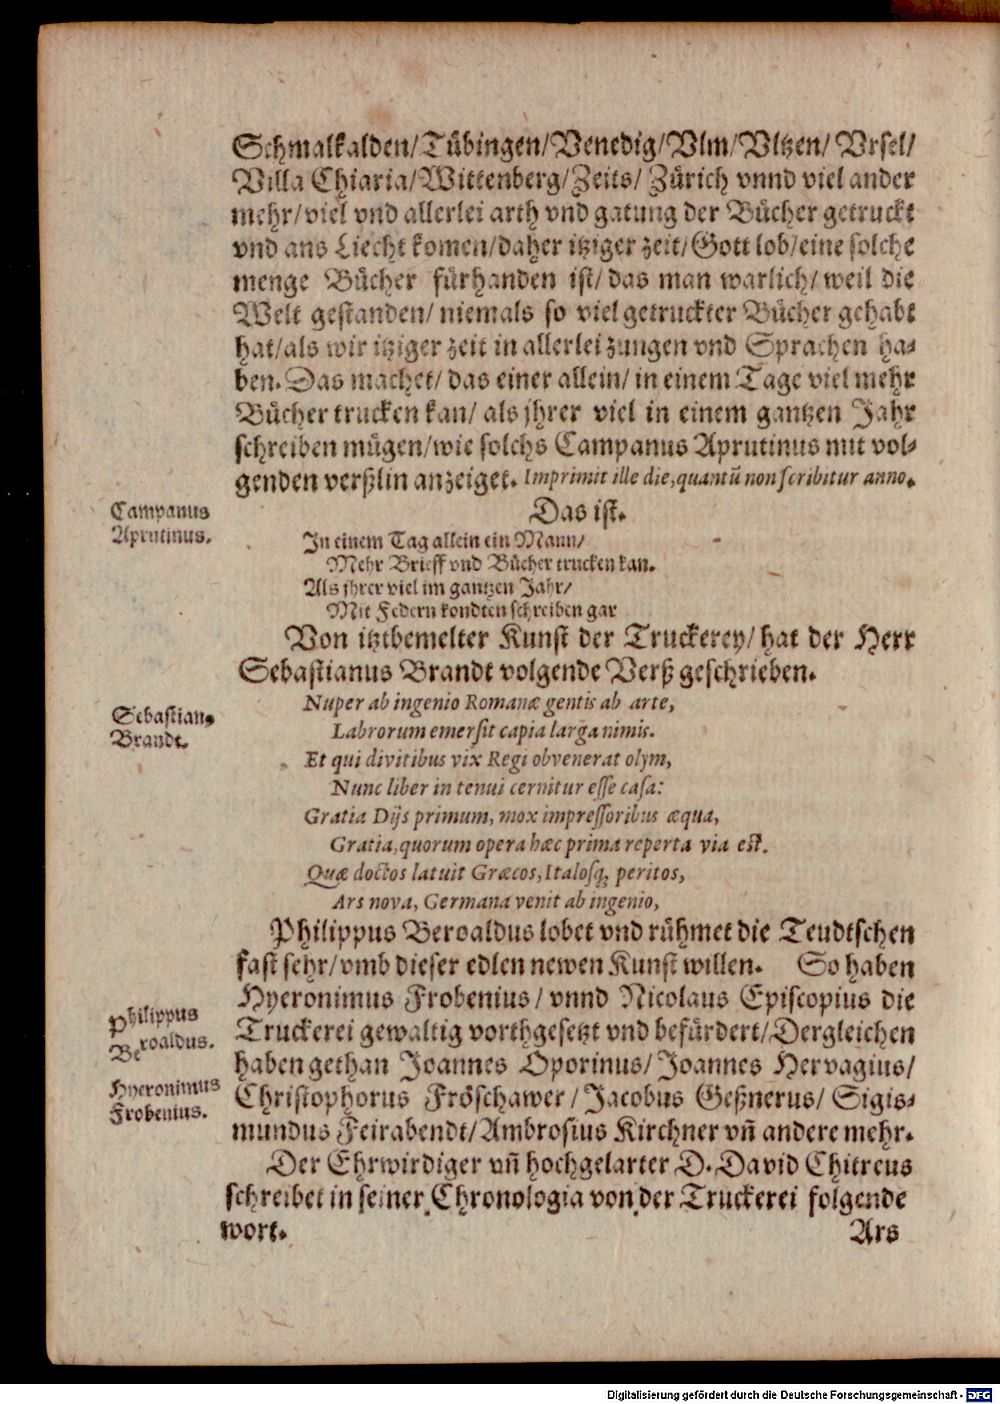 Schmalkalden/Tübingen/Venedig/Vlm/Vltzen/ Vrsel/
Villa Chiaria/Wittenberg/Zeits/ Zürich vnnd viel ander
mehr/viel vnd allerlei arth vnd gatung der Bücher getruckt
vnd ans Liecht komen/daher itziger zeit/Gott lob/eine solche
menge Bücher fürhanden ist/ das man warlich/ weil die
Welt gestanden/ niemals so viel getruckter Bücher gehabt
hat/als wir itziger zeit in allerlei zungen vnd Sprachen ha-
ben. Das machet/ das einer allein/ in einem Tage viel mehr
Bücher trucken kan/ als jhrer viel in einem gantzen Jahr
schreiben mügen/wie solchs Campanus Aprutinus mit vol-
genden verßlin anzeiget. Imprimit ille die, quantū non scribitur anno.
Campanus
Aprutinus.
Das ist.
In einem Tag allein ein Mann/
Mehr Brieff vnd Bücher trucken kan.
Als jhrer viel im gantzen Jahr/
Mit Federn kondten schreiben gar
Von itztbemelter Kunst der Truckerey/ hat der Herr
Sebastianus Brandt volgende Verß geschrieben.
Sebastian.
Brandt.
Nuper ab ingenio Romanæ gentis ab arte,
Labrorum emersit capia larga nimis.
Et qui divitibus vix Regi obvenerat olym,
Nunc liber in tenui cernitur esse casa:
Gratia Dijs primum, mox impressoribus æqua,
Gratia, quorum opera hæc prima reperta via est.
Quæ doctos latuit Græcos, Italosq; peritos,
Ars nova, Germana venit ab ingenio,
Philippus Beroaldus lobet vnd rühmet die Teudtschen
fast sehr/vmb dieser edlen newen Kunst willen. So haben
Hyeronimus Frobenius/ vnnd Nicolaus Episcopius die
Truckerei gewaltig vorthgesetzt vnd befürdert/Dergleichen
haben gethan Joannes Oporinus/ Joannes Hervagius/
Christophorus Fröschawer/ Jacobus Geßnerus/ Sigis-
mundus Feirabendt/Ambrosius Kirchner vñ andere mehr.
Philippus
Beroaldus.
Hyeronimus
Frobenius.
Der Ehrwirdiger vñ hochgelarter D. David Chitreus
schreibet in seiner Chronologia von der Truckerei folgende
wort.
Ars
Digitalisierung gefördert durch die Deutsche Forschungsgemeinschaft - DFG